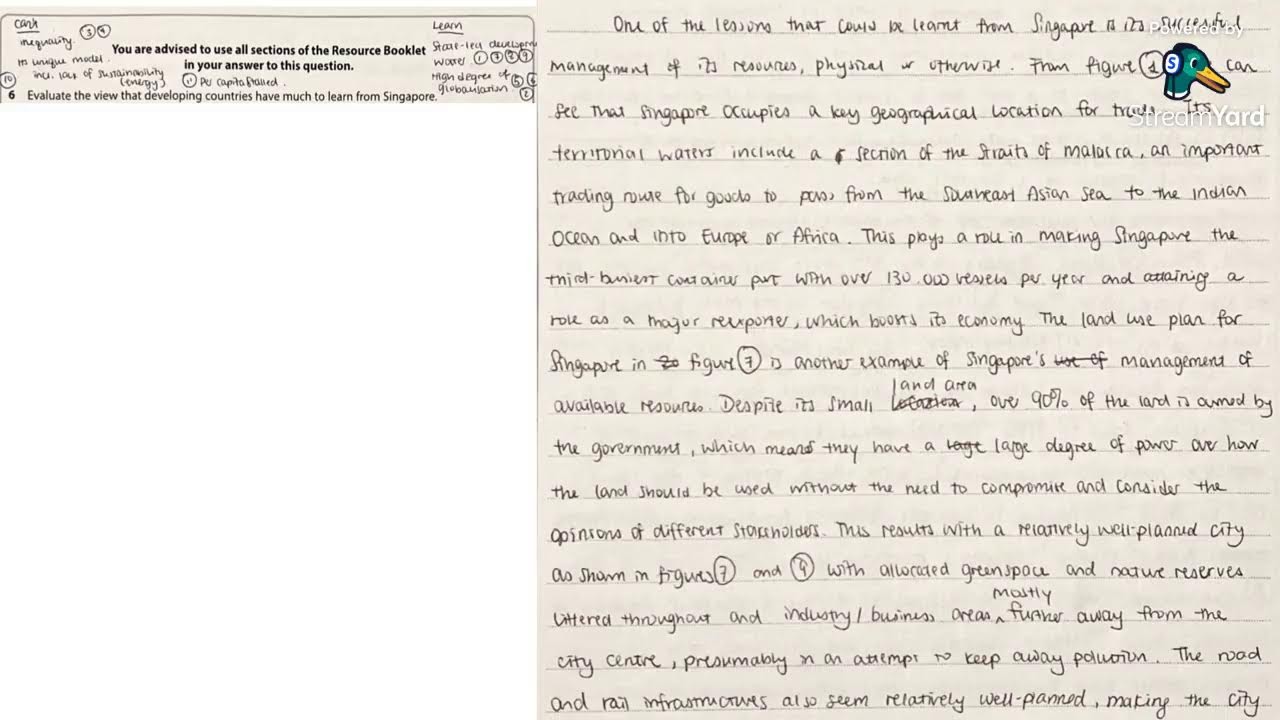 can't
inequality. ③④
to unique model.
⑩ incl. lack of sustainability
(energy) ⑪ Per capita
Learn
State-led develop
water ① ⑦
High degree of
globalisation
You are advised to use all sections of the Resource Booklet
in your answer to this question.
6 Evaluate the view that developing countries have much to learn from Singapore.
One of the lessons that could be learnt from Singapore is its successful
management of its resources, physical or otherwise. From figure ① can
see that Singapore occupies a key geographical location for trade. Its
territorial waters include a section of the Straits of Malacca, an important
trading route for goods to pass from the Southeast Asian Sea to the Indian
Ocean and into Europe or Africa. This plays a role in making Singapore the
third-busiest container port with over 130,000 vessels per year and attaining a
role as a major reexporter, which boosts its economy. The land use plan for
Singapore in figure ⑦ is another example of Singapore's use of management of
available resources. Despite its small location land area, over 90% of the land is owned by
the government, which means they have a large degree of power over how
the land should be used without the need to compromise and consider the
opinions of different stakeholders. This results with a relatively well-planned city
as shown in figures ⑦ and ⑨ with allocated greenspace and nature reserves
littered throughout and industry/business areas mostly further away from the
city centre, presumably in an attempt to keep away pollution. The road
and rail infrastructures also seem relatively well-planned, making the city
Powered by
StreamYard